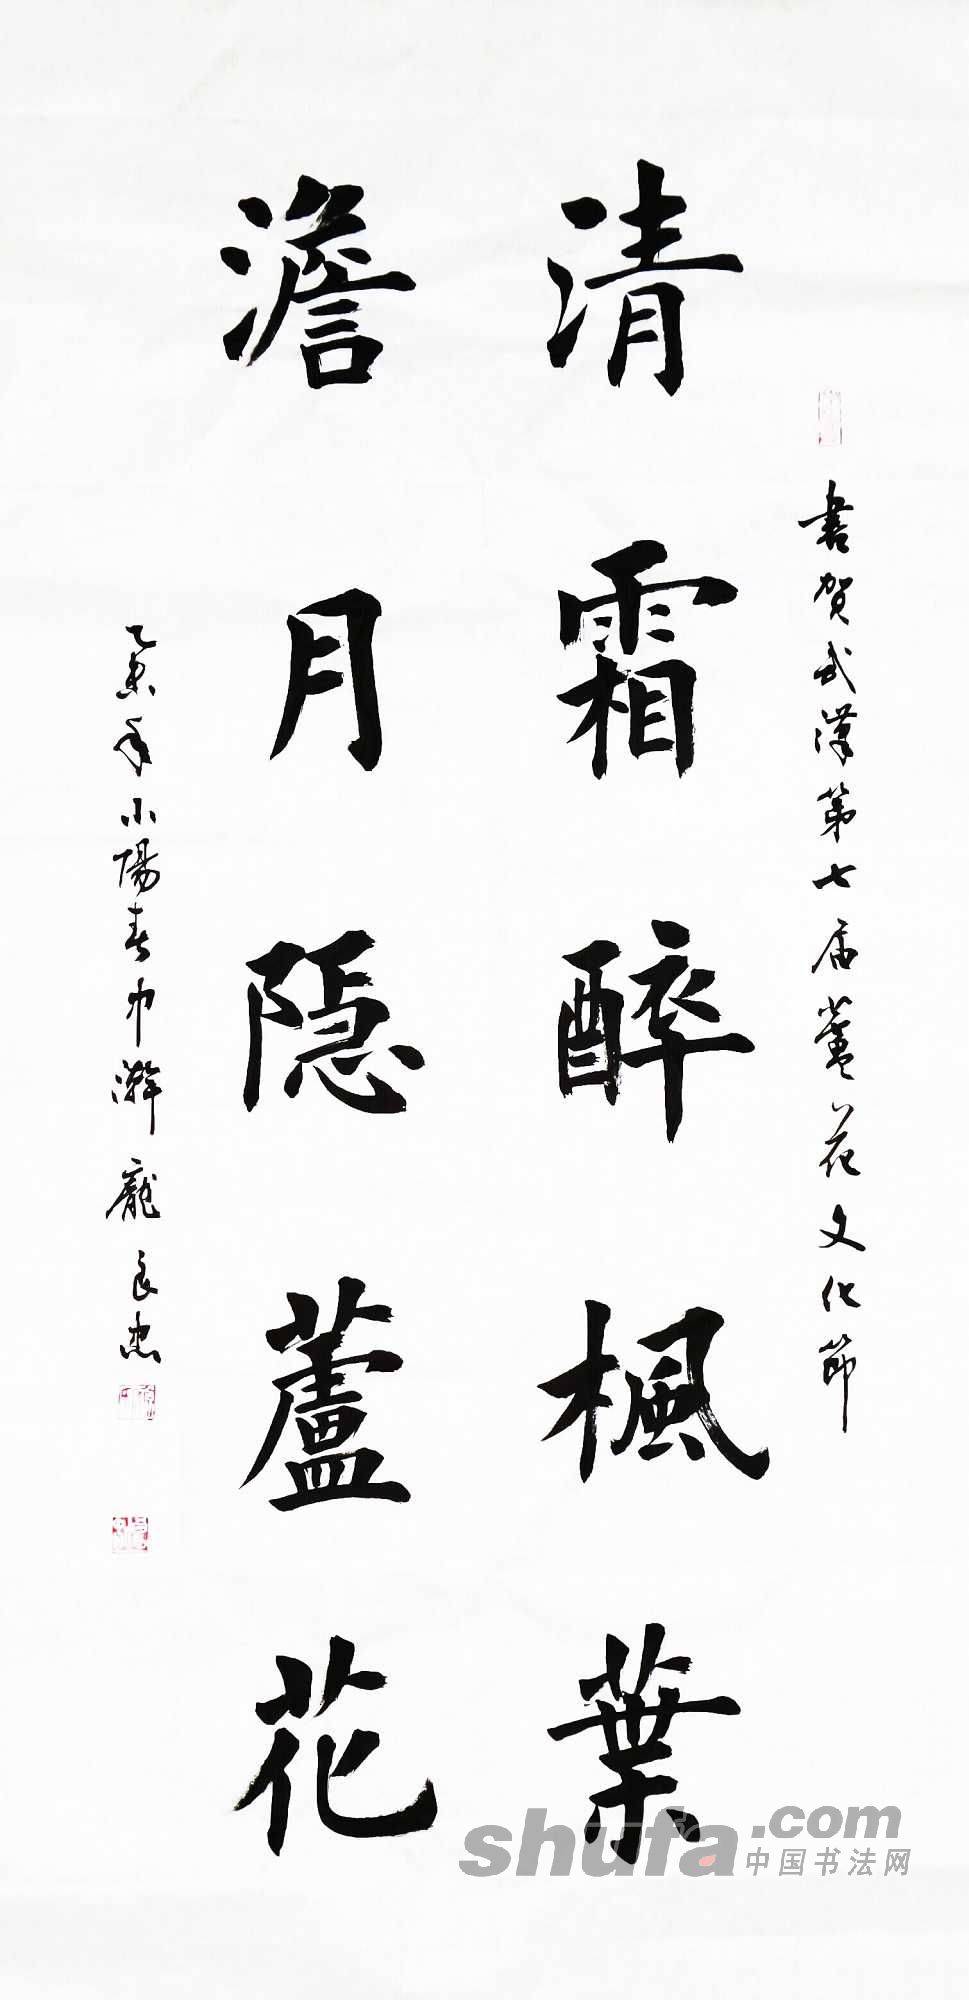 書賀武漢第七届蘆花文化節
清霜醉楓葉
澹月隐蘆花
乙未年小陽春中澣 龐良忠
shufa.com
中国书法网